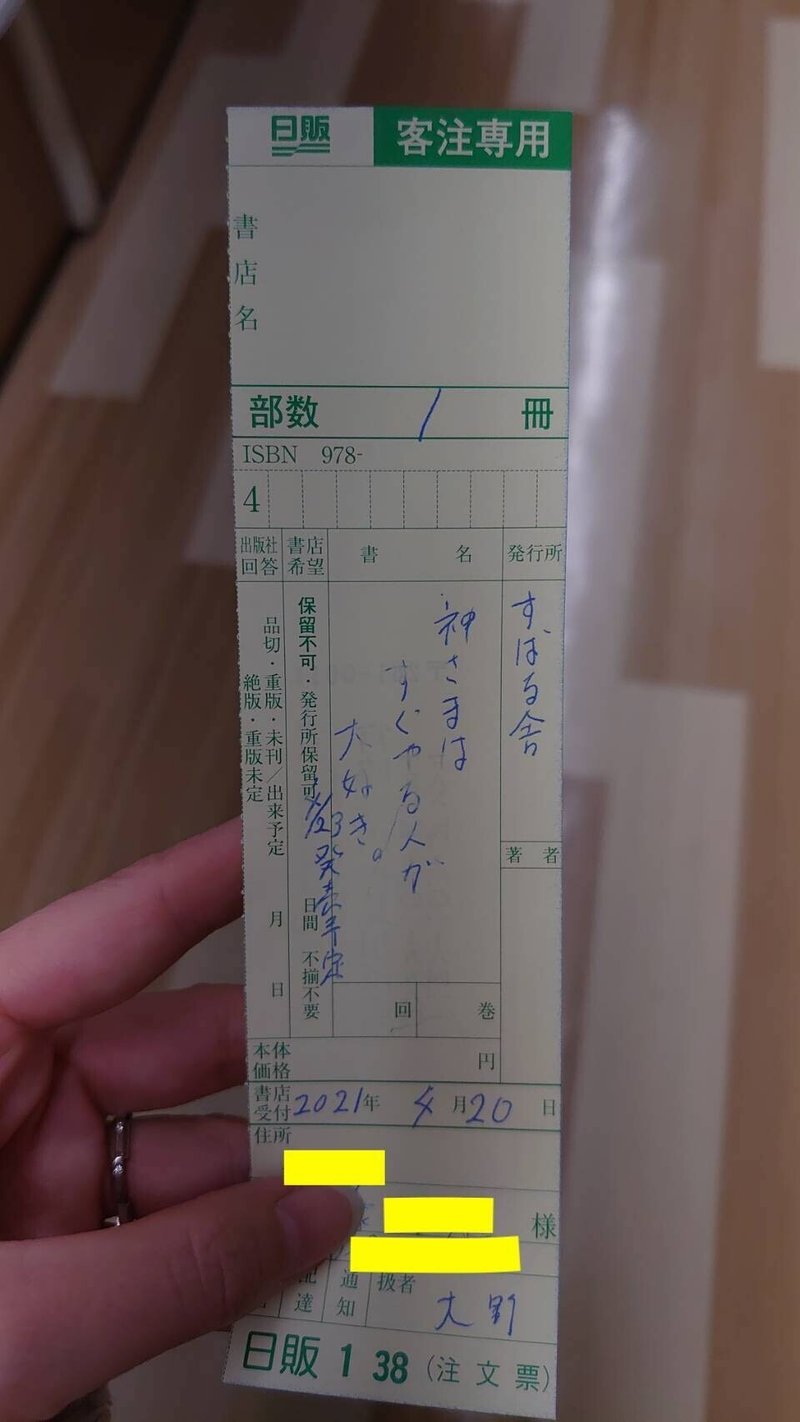 日販
客注専用
書店名
部数 1 冊
ISBN 978-
4
発行所
すばる舎
著者
書名
神さまは
すぐやる人が
大好き。
回 巻
書店希望
保留不可・発行所保留可 日間 不揃不要
4/23発売予定
出版社回答
品切・重版・未刊/出来予定 月 日
絶版・重版未定
本体価格 円
書店受付 2021年 4月20日
住所
様
配達
通知
扱者
大野
日販 1 38 (注文票)